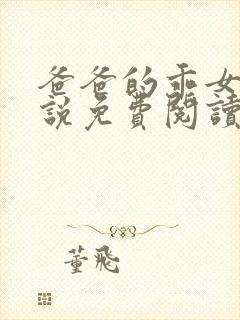 爸爸的乖女
說免費閱讀
董飛